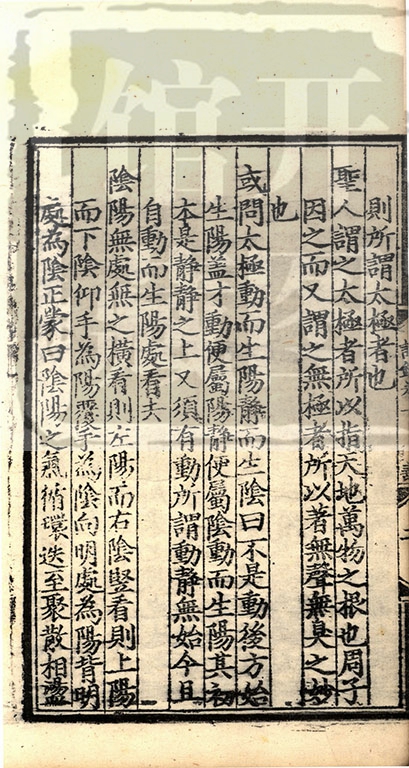 則所謂太極者也
聖人謂之太極者所以指天地萬物之根也周子
因之而又謂之無極者所以著無聲無臭之妙
也
或問太極動而生陽靜而生陰曰不是動後方始
生陽蓋才動便屬陽靜便屬陰動而生陽其初
本是靜靜之上又須有動所謂動靜無始今且
自動而生陽處看去
陰陽無處無之橫看則左陽而右陰竪看則上陽
而下陰仰手為陽覆手為陰向明處為陽背明
處為陰正蒙曰陰陽之氣循環迭至聚散相盪